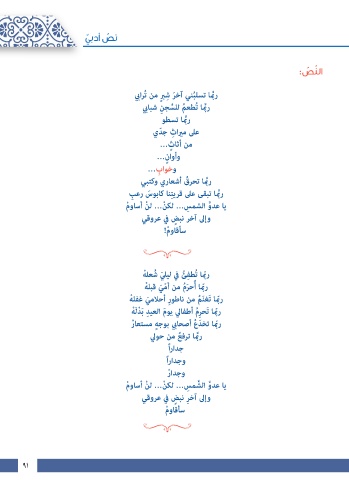 نصّ أدبيّ
النّصّ:
ربّما تسلبُني آخرَ شِبرٍ من تُرابي
ربّما تُطعمُ للسّجنِ شبابي
ربّما تسطو
على ميراثِ جدّي
من أثاثٍ...
وأوانٍ...
وخوابٍ...
ربّما تحرقُ أشعاري وكتبي
ربّما تبقى على قريتِنا كابوسَ رعبِ
يا عدوَّ الشمسِ... لكنْ... لنْ أساومْ
وإلى آخرِ نبضٍ في عروقي
سأقاومْ!
ربّما تُطفئُ في ليليَ شُعلهْ
ربّما أُحرَمُ من أمّيَ قبلهْ
ربّما تَغنَمُ من ناطورِ أحلاميَ غفلهْ
ربّما تَحرِمُ أطفالي يومَ العيدِ بَدْلَهْ
ربّما تخدَعُ أصحابي بوجهٍ مستعارْ
ربّما ترفعُ من حولي
جداراً
وجداراً
وجدارْ
يا عدوَّ الشّمسِ... لكنْ... لنْ أساومْ
وإلى آخرِ نبضٍ في عروقي
سأقاومْ
٩١